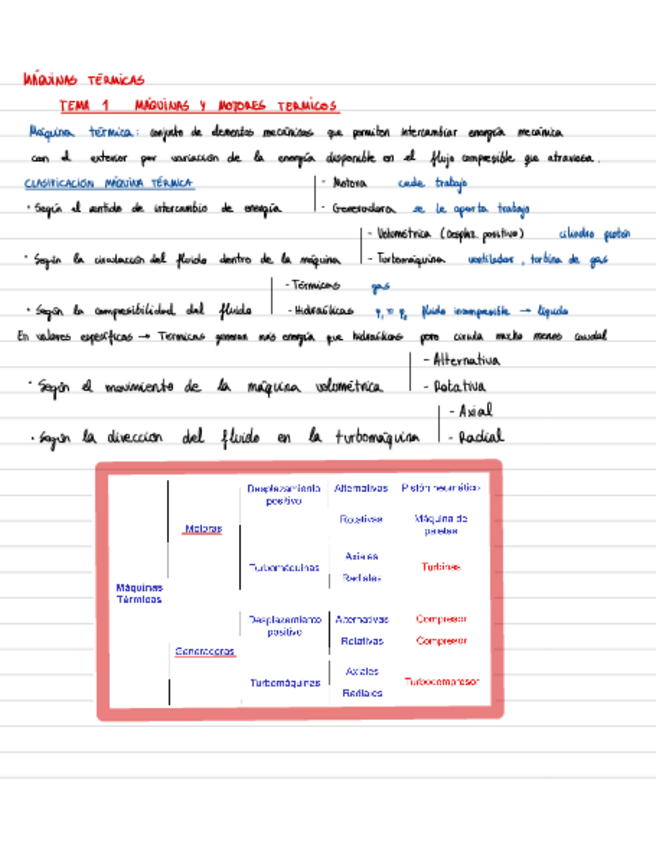 MÁQUINAS TÉRMICAS
TEMA 1 MÁQUINAS Y MOTORES TERMICOS
Máquina térmica: conjunto de elementos mecánicos que permiten intercambiar energía mecánica
con el exterior por variación de la energía disponible en el flujo compresible que atraviesa.
CLASIFICACIÓN MÁQUINA TÉRMICA
- Motora cede trabajo
· Según el sentido de intercambio de energía
- Generadora se le aporta trabajo
- Volumétrica (Desplaz. positivo) cilindro pistón
· Según la circulación del fluido dentro de la máquina - Turbomáquina ventilador, turbina de gas
- Térmicas gas
· Según la compresibilidad del fluido - Hidraúlicas fluido incompresible → líquido
En valores específicos → Termicas generan más energía que hidraúlicas pero circula mucho menos caudal
- Alternativa
· Según el movimiento de la máquina volumétrica - Rotativa
- Axial
· Según la dirección del fluido en la turbomáquina - Radial
Desplazamiento positivo Alternativas Pistón neumático
Motoras Rotativas Máquina de paletas
Turbomáquinas Axiales Turbinas
Radiales
Máquinas Térmicas
Desplazamiento positivo Alternativas Compresor
Rotativas Compresor
Generadoras
Turbomáquinas Axiales Turbocompresor
Radiales